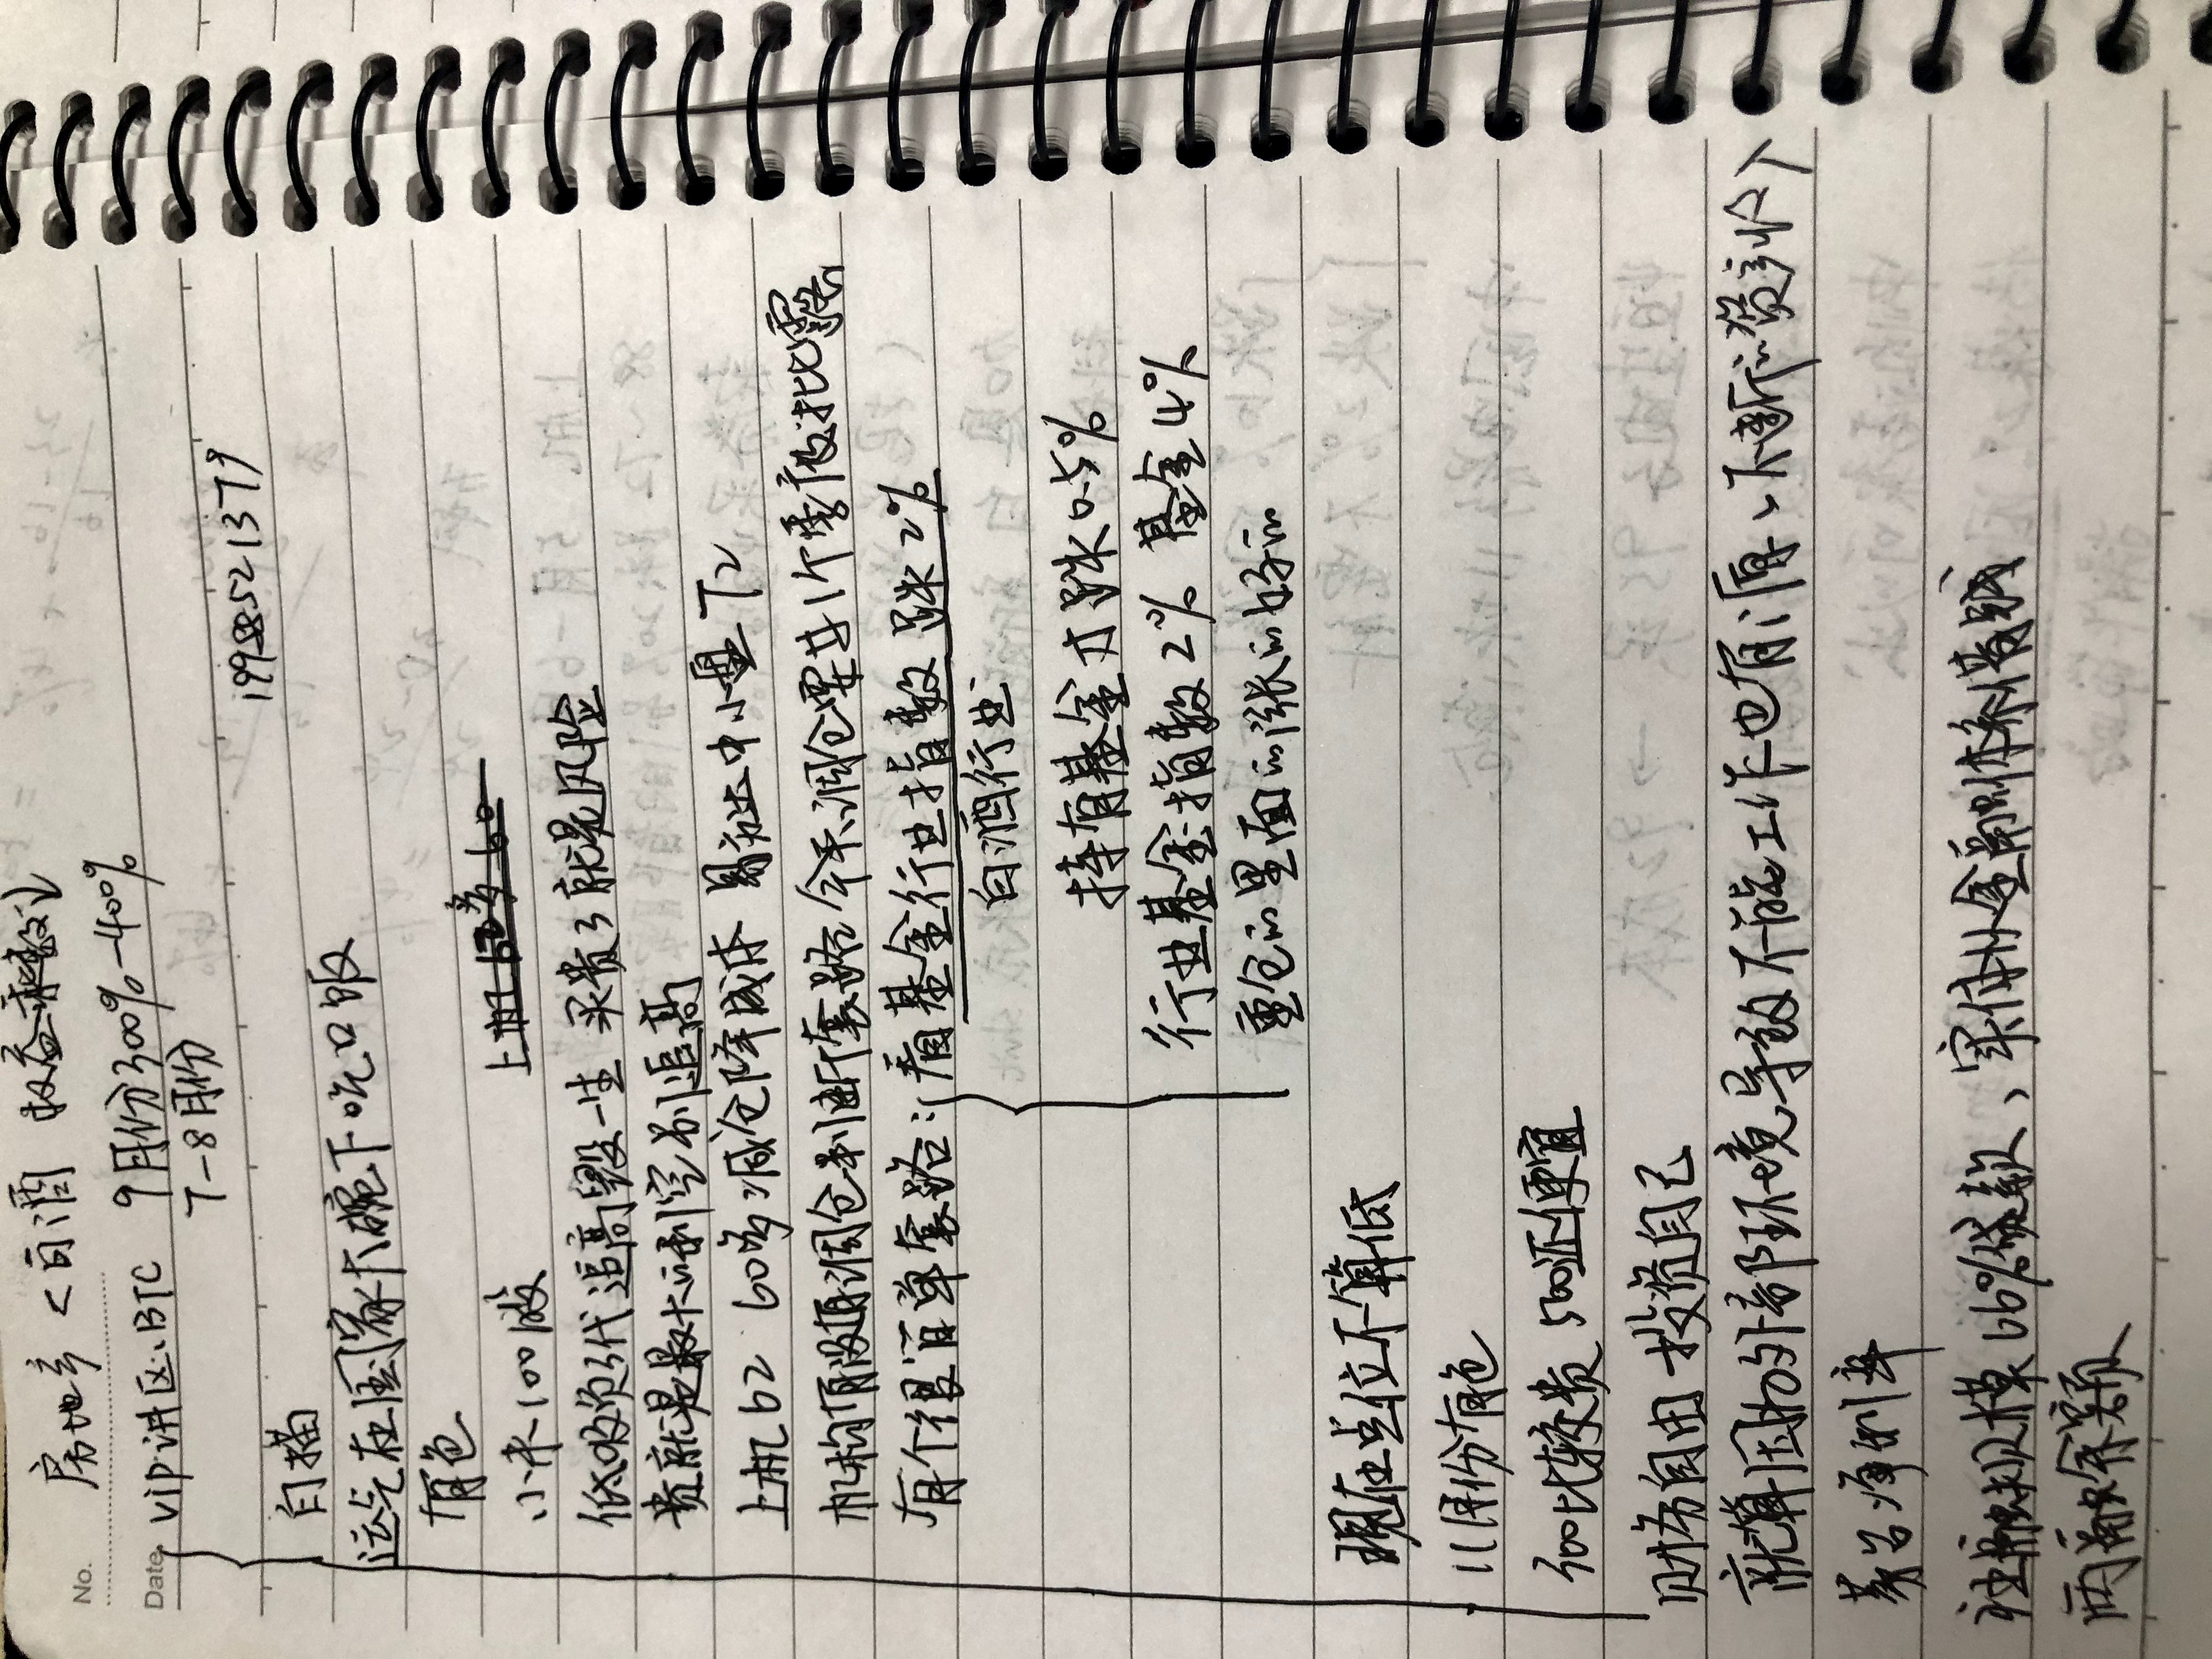 房地产<白酒 权益乘数↓
No.
Date
vip讲区、BTC 9月份300%-400%
7-8月份
19988521379
白描
运气在国家大碗下吃口饭
有色
小米100股
上机62多60
低吸负3代 追高毁一生 买贵了就是风险
贵就是最大的利空别追高
上机62 60多减仓降成本 易方达中小盘72
机构有没有调仓判断套路 今天调仓要其1个季度批露
有个很简单套路:看基金行业指数 跌2%
白酒行业
持有基金才跌0.5%
行业基金指数2% 基金4%
重仓的里面的涨的好的
现在点位不算低
11月份有色
300比较贵 500还便宜
财务自由 投资自己
就算因为外部环境导致不能工作也有源、不断的资产收入
茅台净利率
社融规模66%贷款、实体从金融体系借钱
两融余额